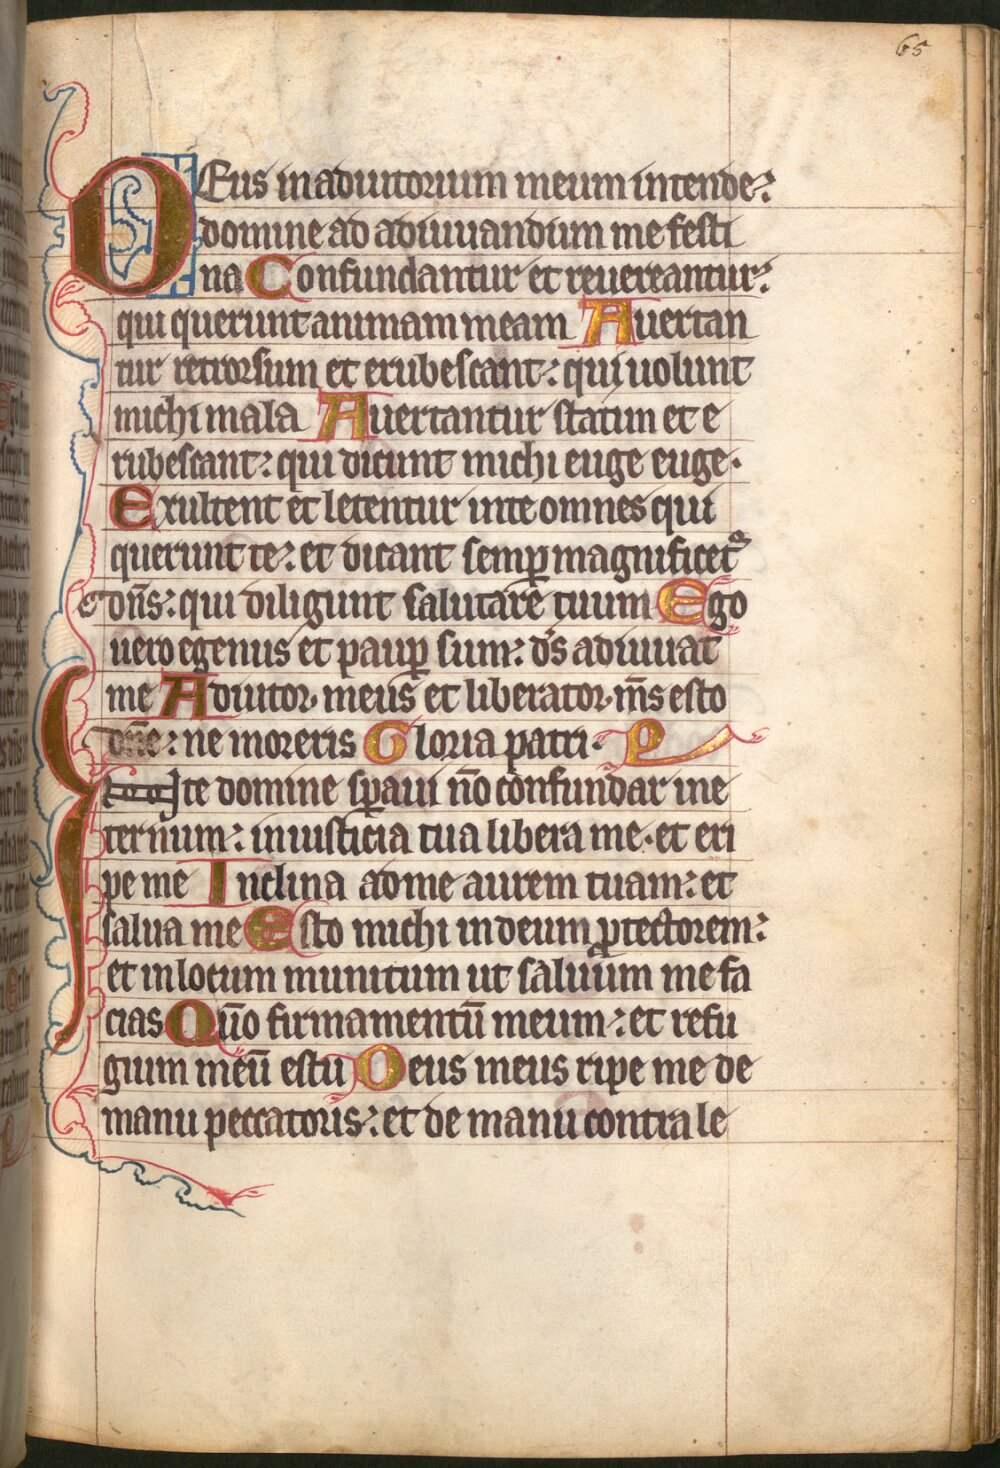 65
DEus in adiutorium meum intende:
domine ad adiuuandum me festi
na Confundantur et reuereantur:
qui querunt animam meam Auertan
tur retrorsum et erubescant: qui uolunt
michi mala Auertantur statim et e
rubescant: qui dicunt michi euge euge.
Exultent et letentur in te omnes qui
querunt te: et dicant semꝑ magnificetᷣ
dn̄s: qui diligunt salutare tuum Ego
uero egenus et pauꝑ sum: ds̄ adiuuat
me Adiutor meus et liberator m̄s esto
dn̄e: ne moreris Gloria patri. P
IN te domine sꝑaui no᷑ confundar in e
ternum: in iusticia tua libera me. et eri
pe me Inclina ad me aurem tuam: et
salua me Esto michi in deum ꝓtectorem:
et in locum munitum ut saluum me fa
cias Quo᷑ firmamentū meum: et refu
gium meū es tu Deus meus ripe me de
manu peccatoris: et de manu contra le